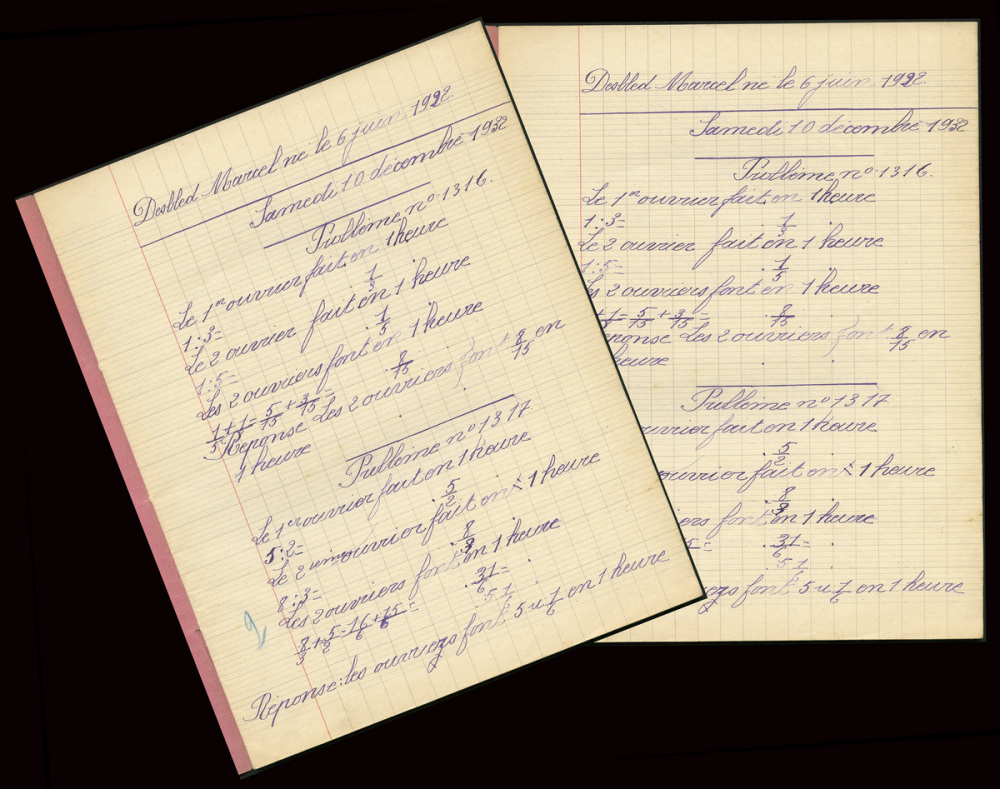 Desbled Marcel né le 6 juin 1922.
Samedi 10 décembre 1932
Problème n° 1316.
Le 1er ouvrier fait en 1 heure
1:3= 1/3
Le 2 ouvrier fait en 1 heure
1:5= 1/5
Les 2 ouvriers font en 1 heure
1/5+1/3=5/15+3/15= 8/15
Réponse Les 2 ouvriers font 8/15 en
1 heure
Problème n° 1317
Le 1er ouvrier fait en 1 heure
5:2= 5/2
Le 2 ouvrier fait en 1 heure
8:3= 8/3
Les 2 ouvriers font en 1 heure
8/3+5/2=16/6+15/6= 31/6=
5 1
Réponse: les ouvriers font 5 u 1/6 en 1 heure
2
Desbled Marcel né le 6 juin 1922.
Samedi 10 décembre 1932
Problème n° 1316.
Le 1er ouvrier fait en 1 heure
1:3= 1/3
Le 2 ouvrier fait en 1 heure
1:5= 1/5
Les 2 ouvriers font en 1 heure
+1=5/15+3/15= 8/15
ponse Les 2 ouvriers font 8/15 en
heure
Problème n° 1317
ouvrier fait en 1 heure
5/2
ouvrier fait en 1 heure
8/3
ers font en 1 heure
5= 31/6=
5 1
ers font 5 u 1/6 en 1 heure